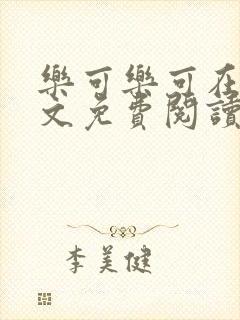 樂可樂可在
文免費閱讀
李美健